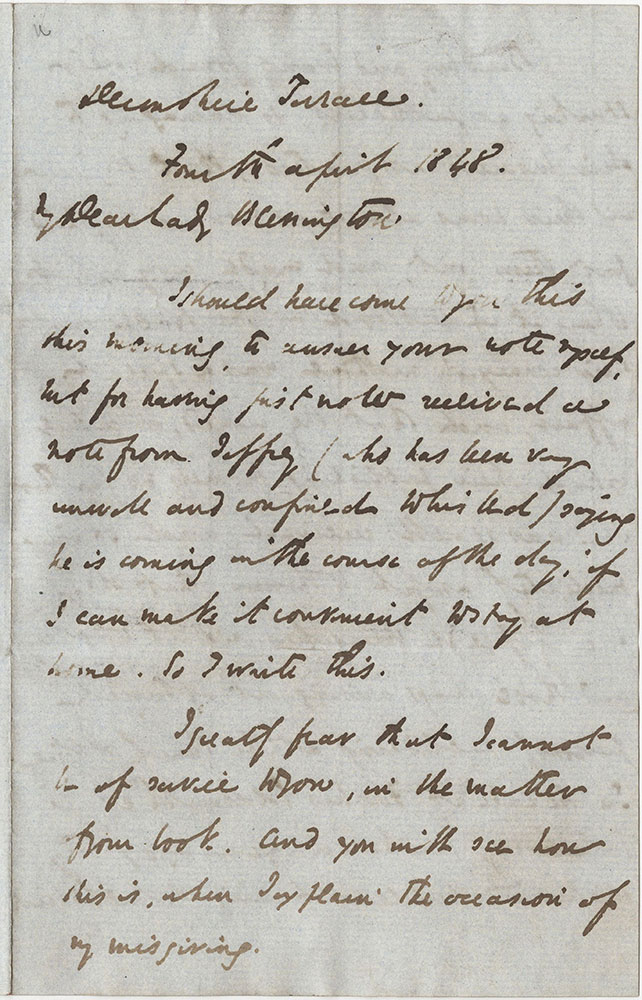 Devonshire Terrace.
Fourth April 1848.
My Dear Lady Blessington
I should have come to you this
this morning, to answer your note myself,
but for having just now received a
note from Jeffrey (who has been very
unwell and confined to his bed) saying
he is coming in the course of the day, if
I can make it convenient to stay at
home. So I write this.
I greatly fear that I cannot
be of service to you, in the matter
from book. And you will see how
this is, when I explain the occasion of
my misgiving.